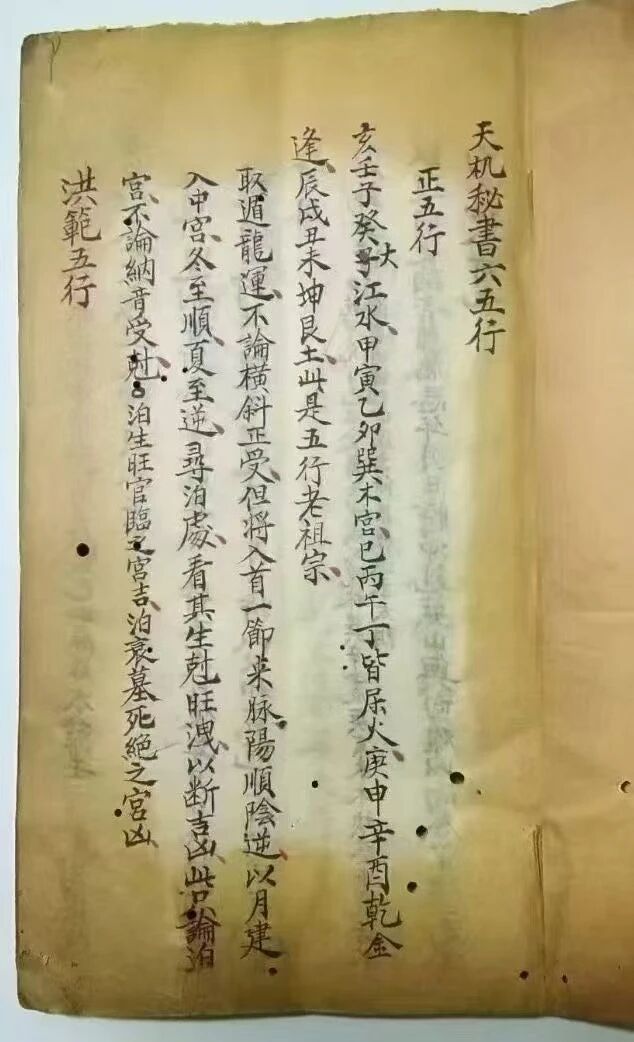 天机秘書六五行
正五行
亥壬子癸大江水甲寅乙卯巽木宫巳丙午丁皆屬火庚申辛酉乾金
逢辰戌丑未坤艮土此是五行老祖宗
取遁龍運不論横斜正受但将入首一節来脉陽順陰逆以月建
入中宫冬至順夏至逆尋泊處看其生尅旺洩以断吉凶此只論泊
宫不論納音受尅泊生旺官臨之宫吉泊衰墓死絕之宫凶
洪範五行